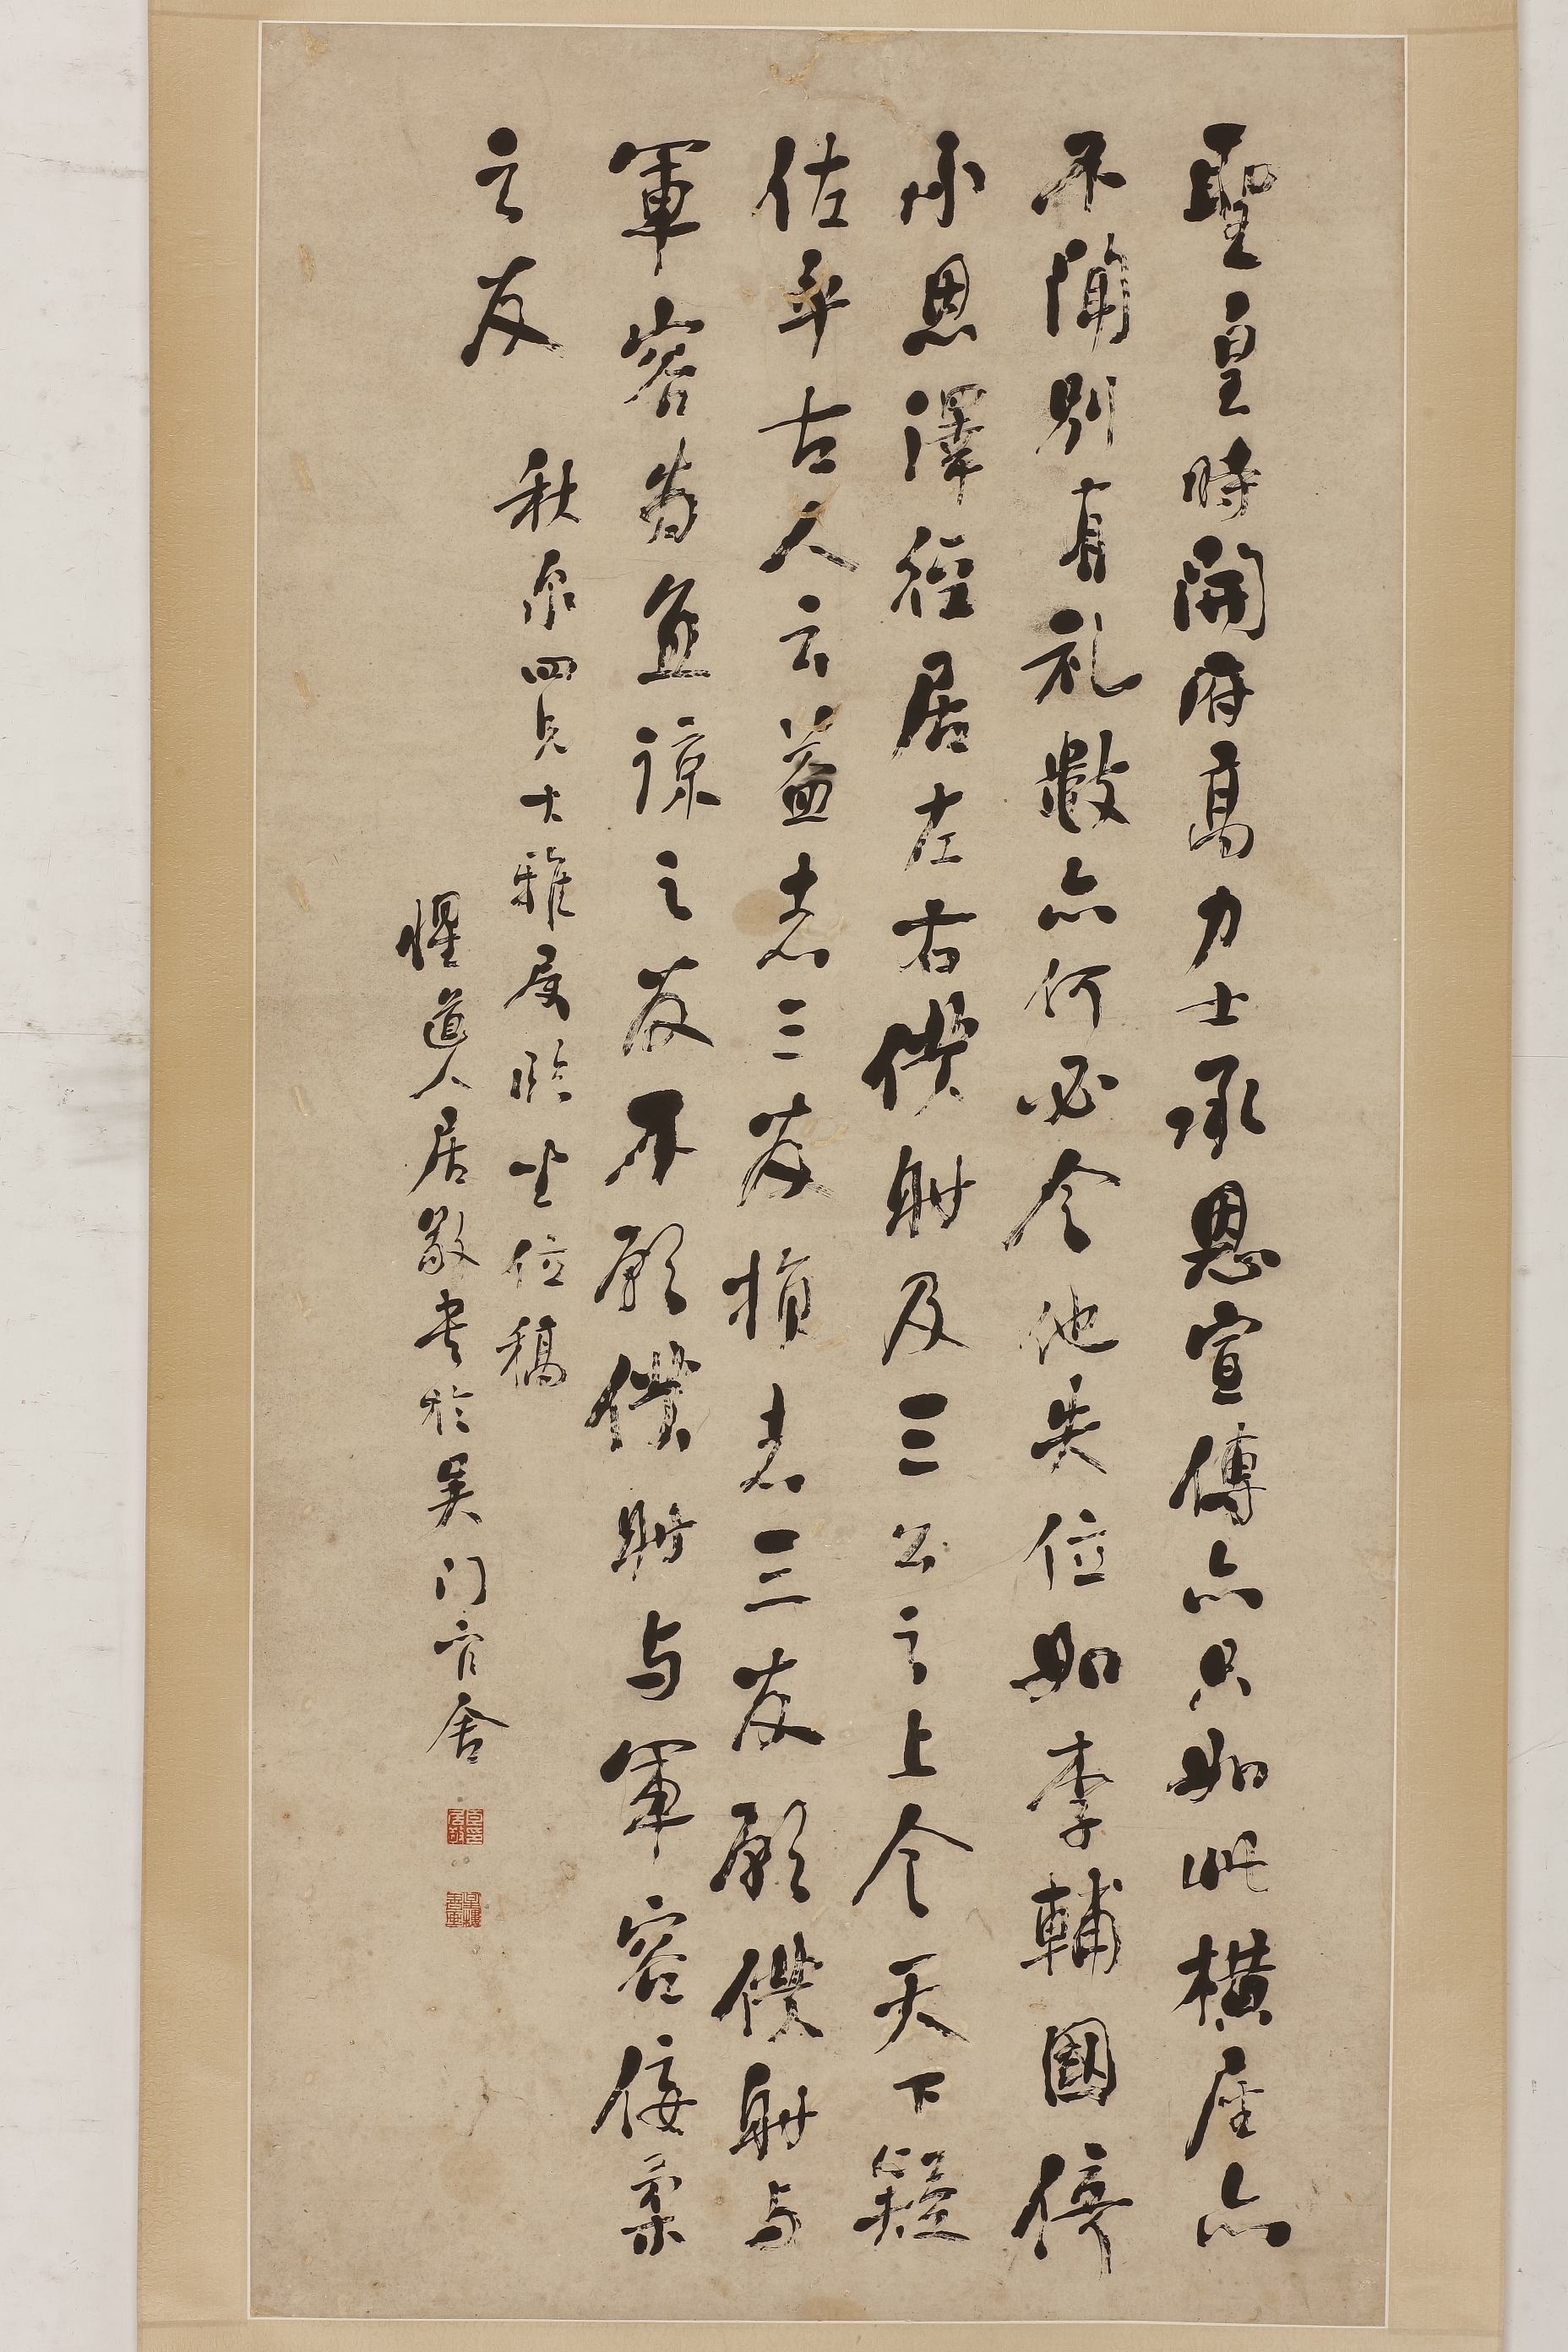 聖皇時開府高力士承恩宣傳亦只如此橫座亦
不聞別有礼數亦何必令他失位如李輔國倚
承恩澤徑居左右僕射及三公之上令天下疑
怪乎古人云益者三友損者三友願僕射與
軍容為直諒之友不願僕射与軍容佞柔
之友
秋泉四兄大雅屬臨坐位稿
惺道人居敬書於吴门官舍